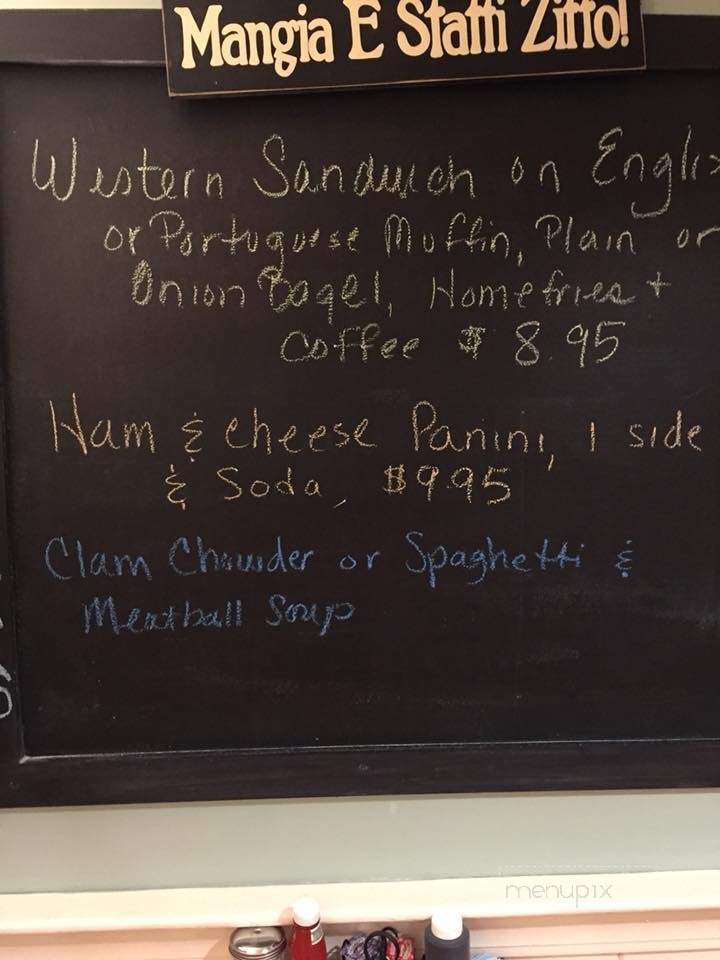 Mangia E Statti Zitto!
Western Sandwich on Englis
or Portuguese Muffin, Plain or
Onion Bagel, Homefries +
Coffee $ 8.95
Ham & cheese Panini, 1 side
& Soda, $9.95
Clam Chowder or Spaghetti &
Meatball Soup
menupix